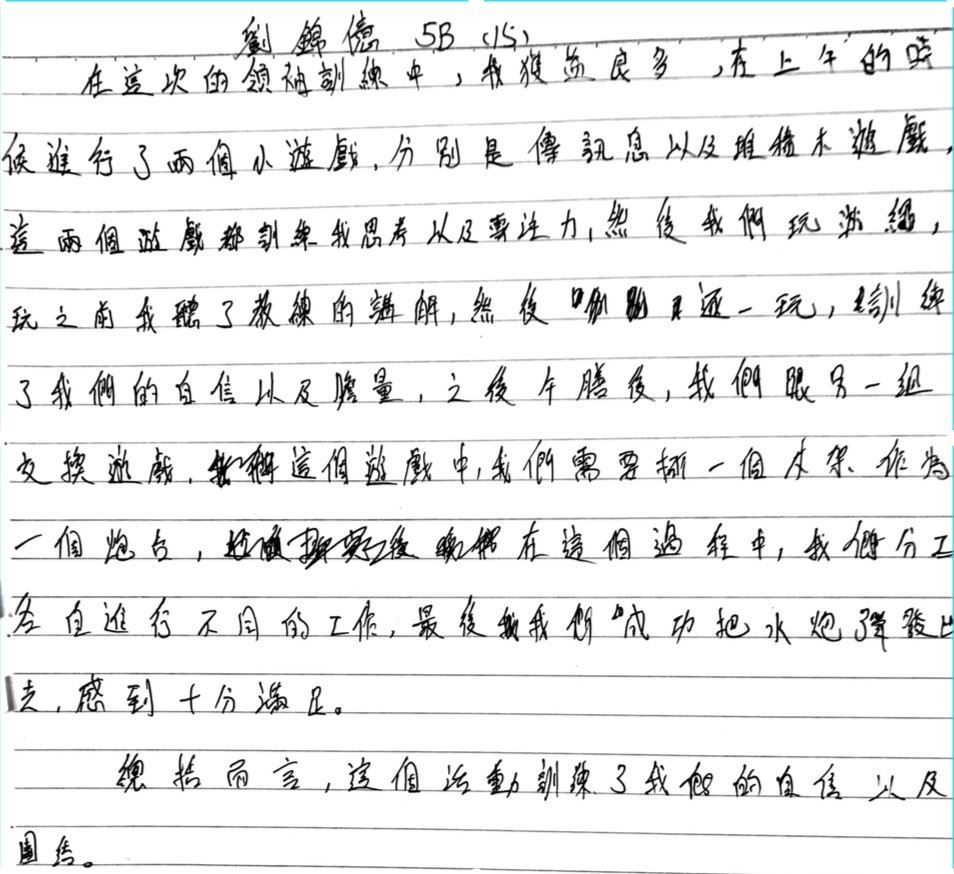 劉錦億 5B (15)
在這次的領袖訓練中，我獲益良多，在上午的時
候進行了兩個小遊戲，分別是傳訊息以及堆積木遊戲，
這兩個遊戲都訓練我思考以及專注力，然後我們玩游繩，
玩之前我聽了教練的講解，然後逐一玩，訓練
了我們的自信以及膽量，之後午膳後，我們跟另一組
交換遊戲，這個遊戲中，我們需要搠一個木架作為
一個炮台，在這個過程中，我們分工
各自進行不同的工作，最後我們成功把水炮彈發出
去，感到十分滿足。
總括而言，這個活動訓練了我們的自信以及
團結。